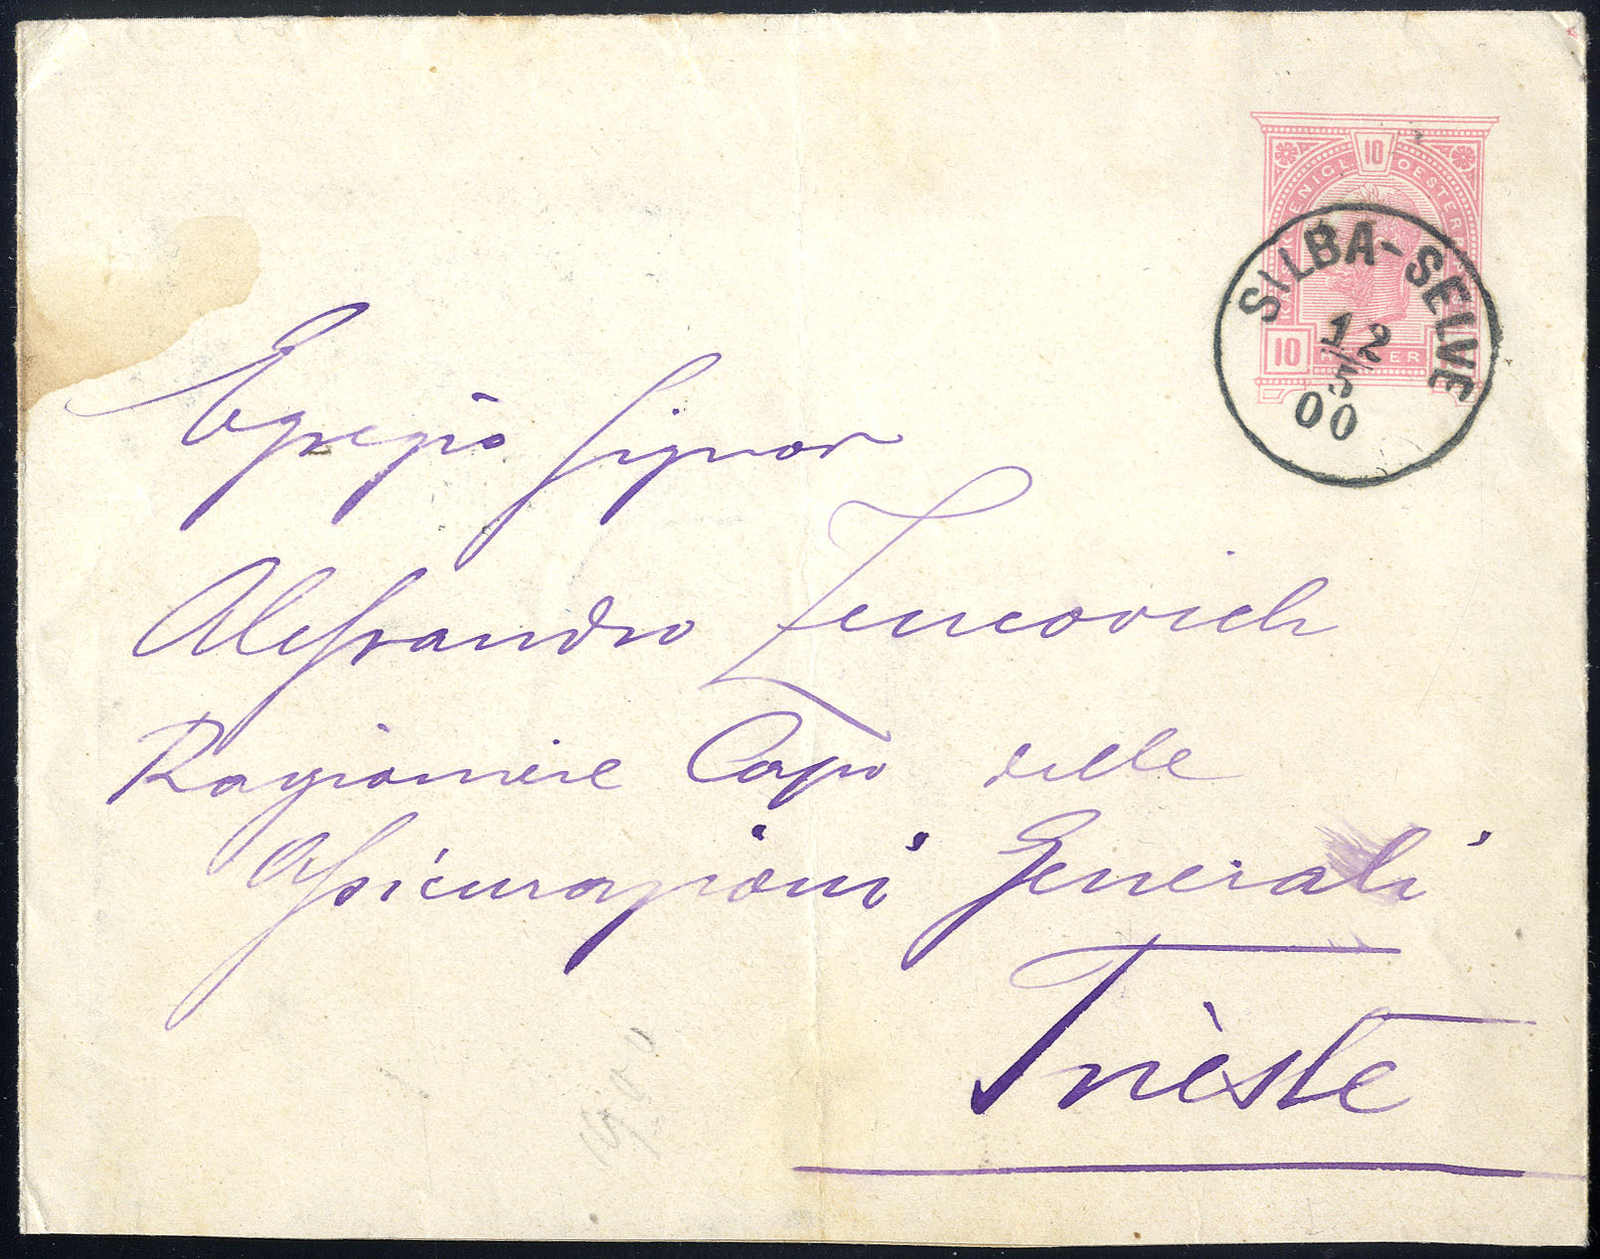 10
K. KOENIGL. OESTERR.
SILBA-SELVE
12/5
00
10 HELLER
Egregio Signor
Alessandro Zencovich
Ragioniere Capo delle
Assicurazioni Generali
Trieste